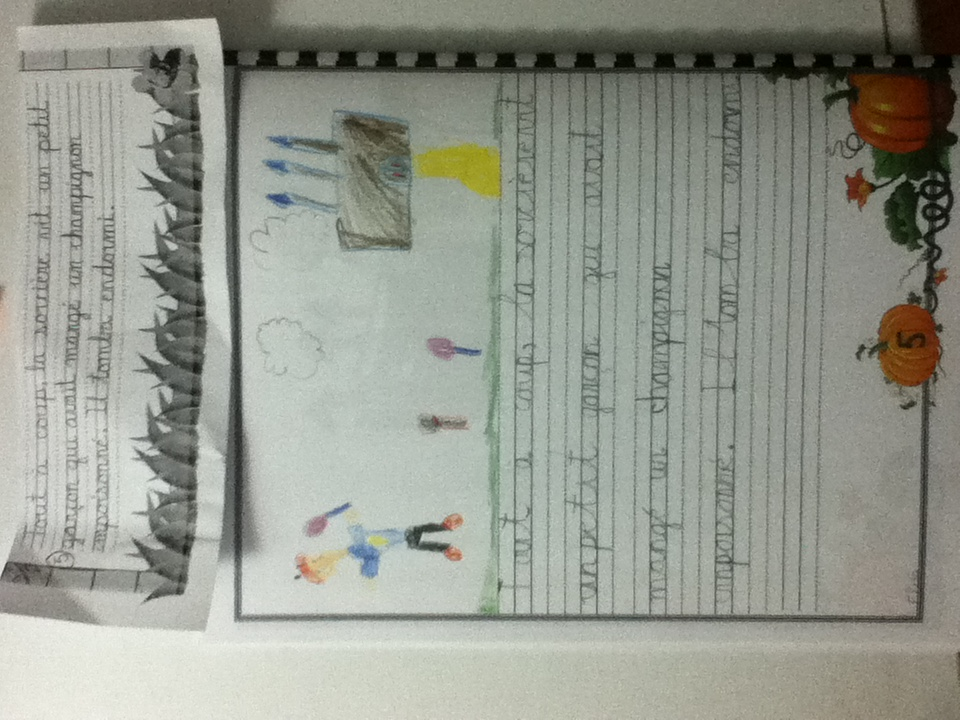 Tout à coup, la sorcière vit un petit
5 garçon qui avait mangé un champignon
empoisonné. Il tomba endormi.
Tout à coup, la sorcièrevit
unpetit garçon qui avait
mangé un champignon
inpoisonné. Il tom ba endormi
5